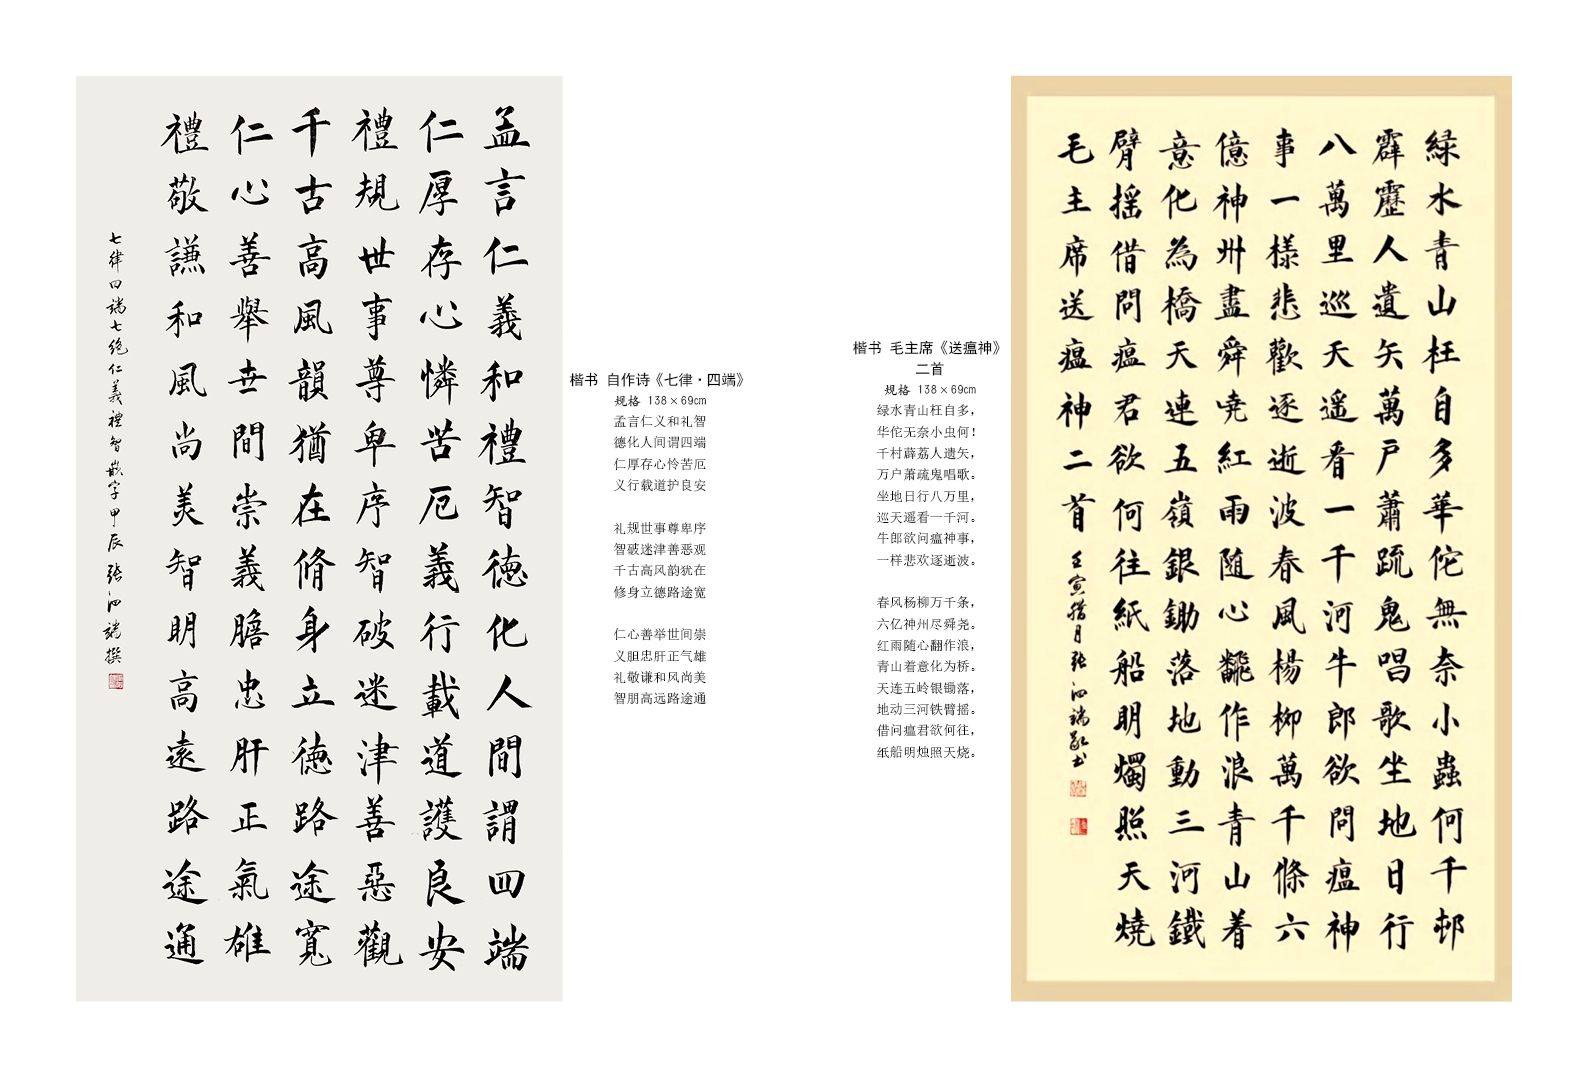 孟言仁義和禮智德化人間謂四端
仁厚存心憐苦厄義行載道護良安
禮規世事尊卑序智破迷津善惡觀
千古高風韻猶在脩身立德路途寬
仁心善舉世間崇義膽忠肝正氣雄
禮敬謙和風尚美智明高遠路途通
七律四端七絕仁義禮智嵌字甲辰張泗端撰
楷书 自作诗《七律·四端》
规格 138×69cm
孟言仁义和礼智
德化人间谓四端
仁厚存心怜苦厄
义行载道护良安
礼规世事尊卑序
智破迷津善恶观
千古高风韵犹在
修身立德路途宽
仁心善举世间崇
义胆忠肝正气雄
礼敬谦和风尚美
智朋高远路途通
楷书 毛主席《送瘟神》
二首
规格 138×69cm
绿水青山枉自多，
华佗无奈小虫何！
千村薜荔人遗矢，
万户萧疏鬼唱歌。
坐地日行八万里，
巡天遥看一千河。
牛郎欲问瘟神事，
一样悲欢逐逝波。
春风杨柳万千条，
六亿神州尽舜尧。
红雨随心翻作浪，
青山着意化为桥。
天连五岭银锄落，
地动三河铁臂摇。
借问瘟君欲何往，
纸船明烛照天烧。
緑水青山枉自多華佗無奈小蟲何千邨
霹靂人遺矢萬戶蕭疏鬼唱歌坐地日行
八萬里巡天遥看一千河牛郎欲問瘟神
事一樣悲歡逐逝波春風楊柳萬千條六
億神州盡舜堯紅雨随心飜作浪青山着
意化為橋天連五嶺銀鋤落地動三河鐵
臂摇借問瘟君欲何往紙船明燭照天燒
毛主席送瘟神二首
壬寅腊月張泗端敬书